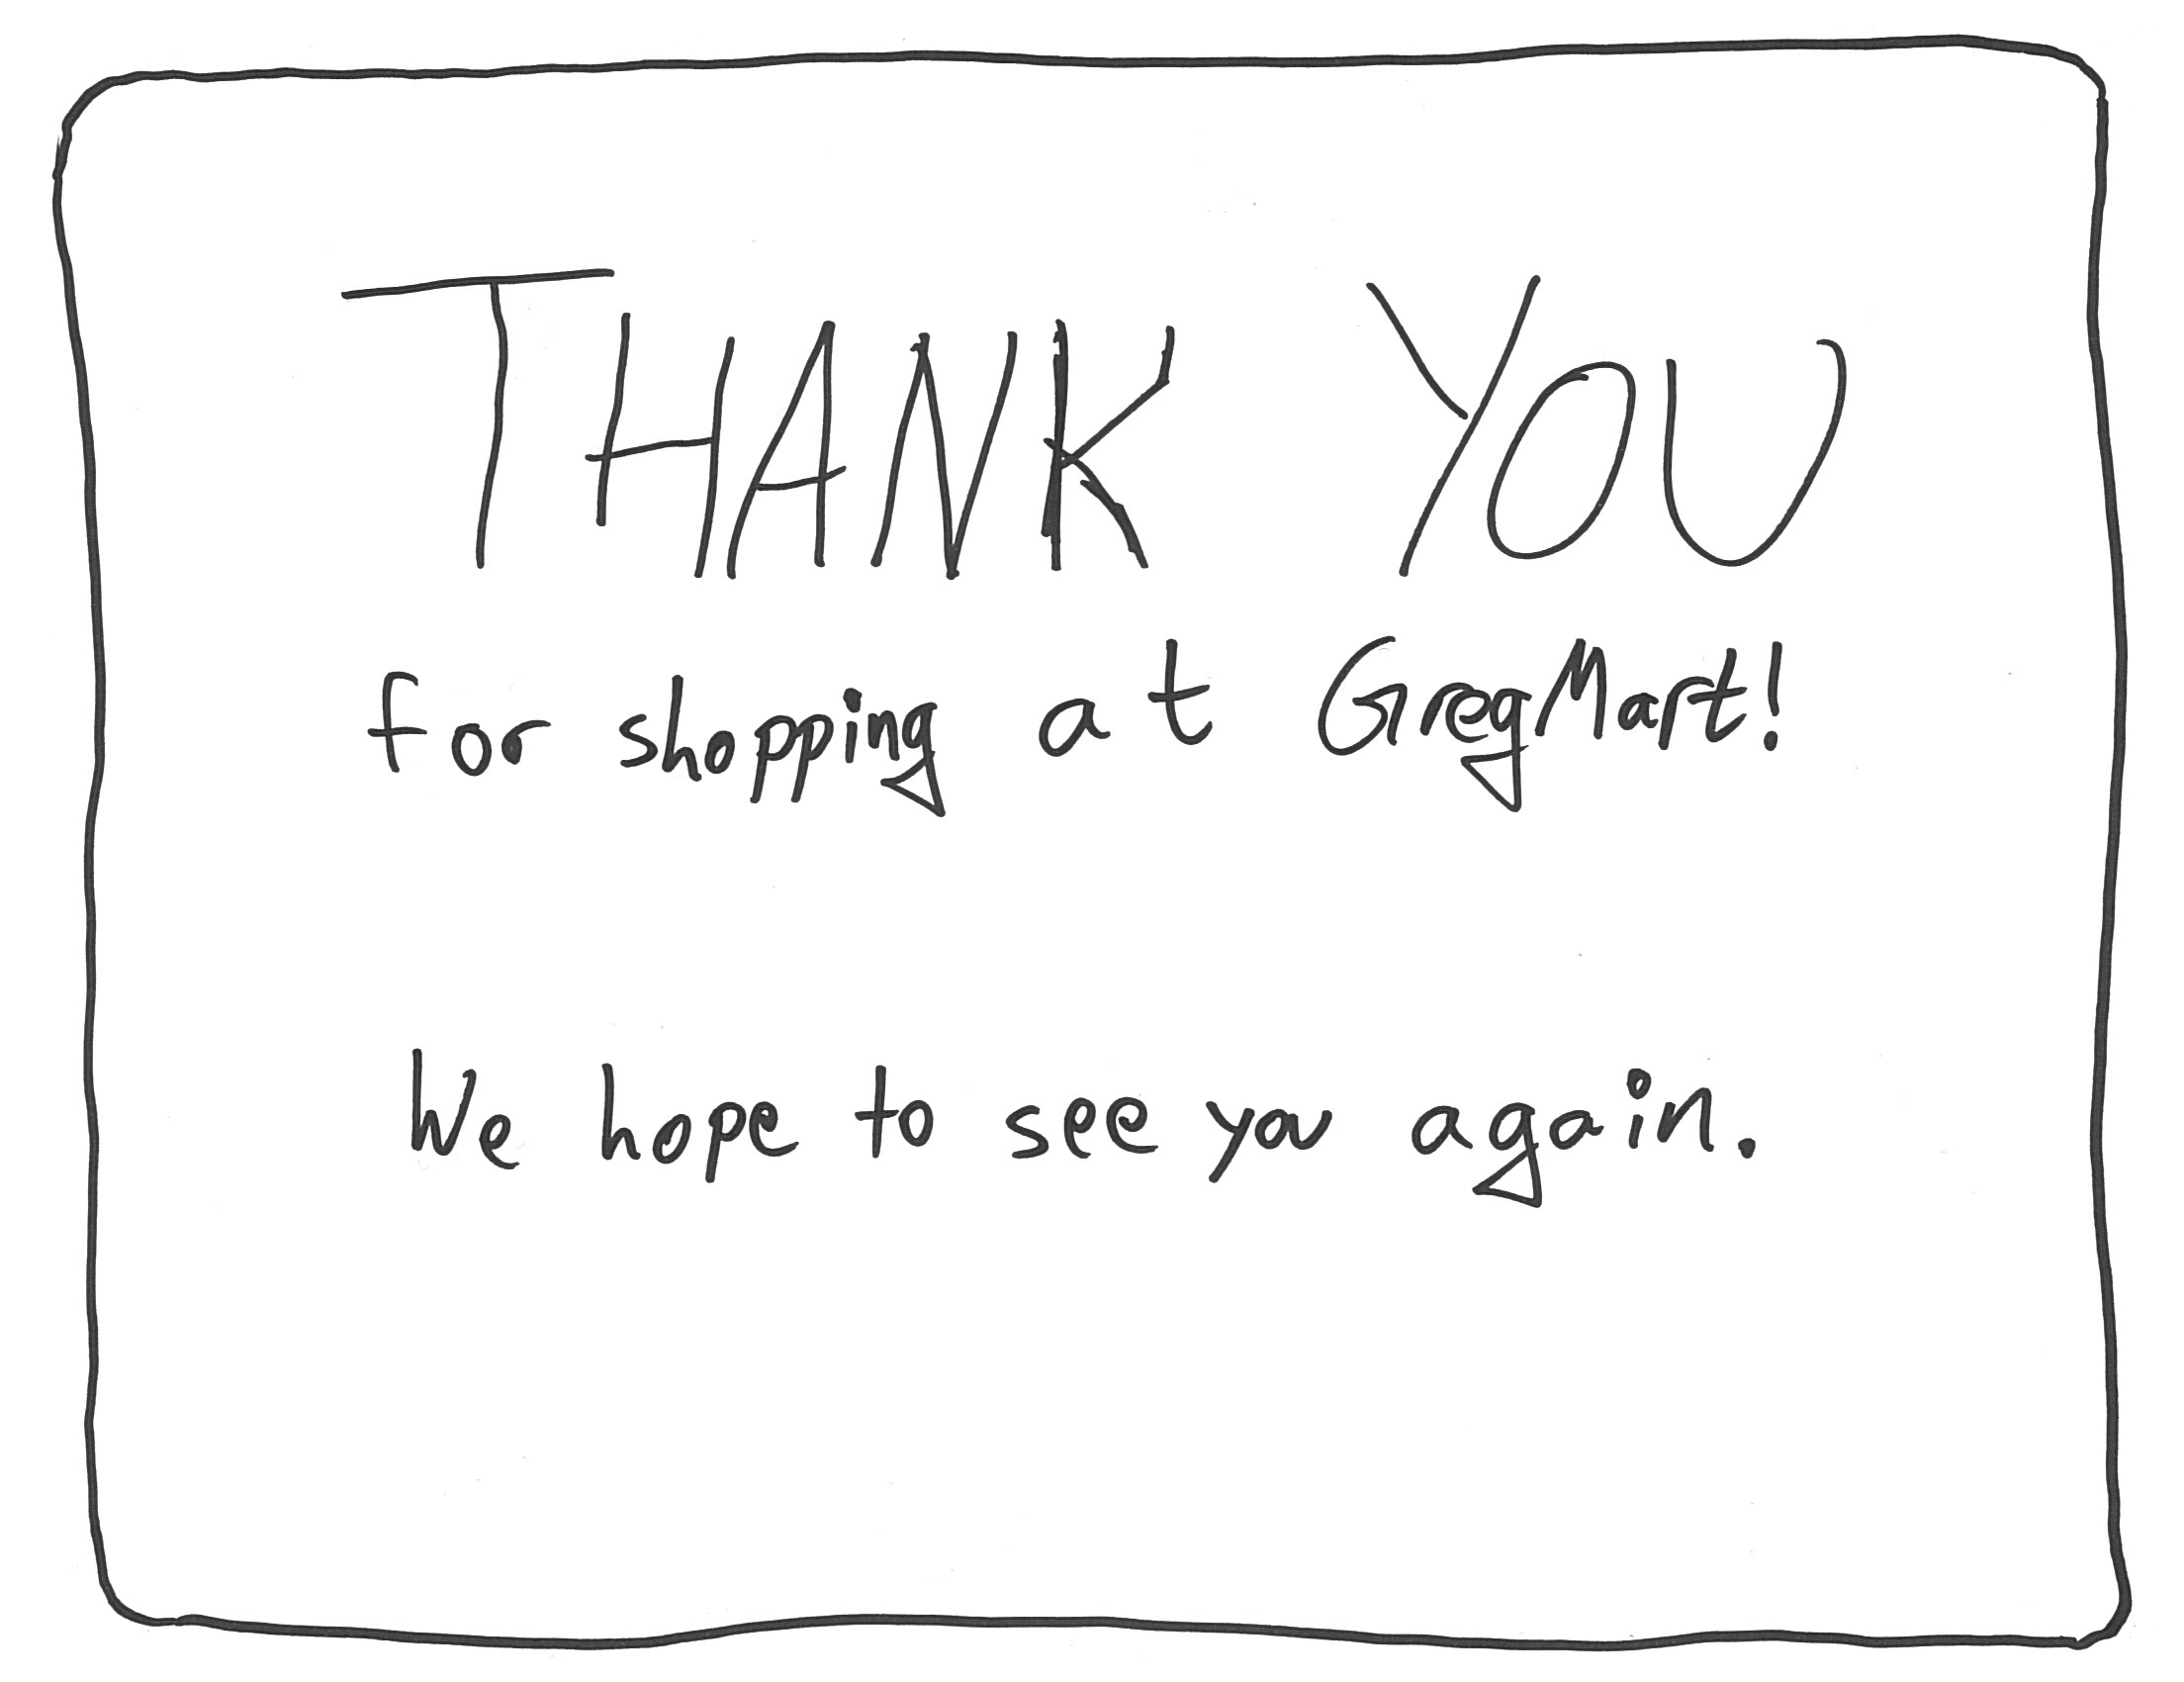 THANK YOU
for shopping at GregMart!
We hope to see you again.